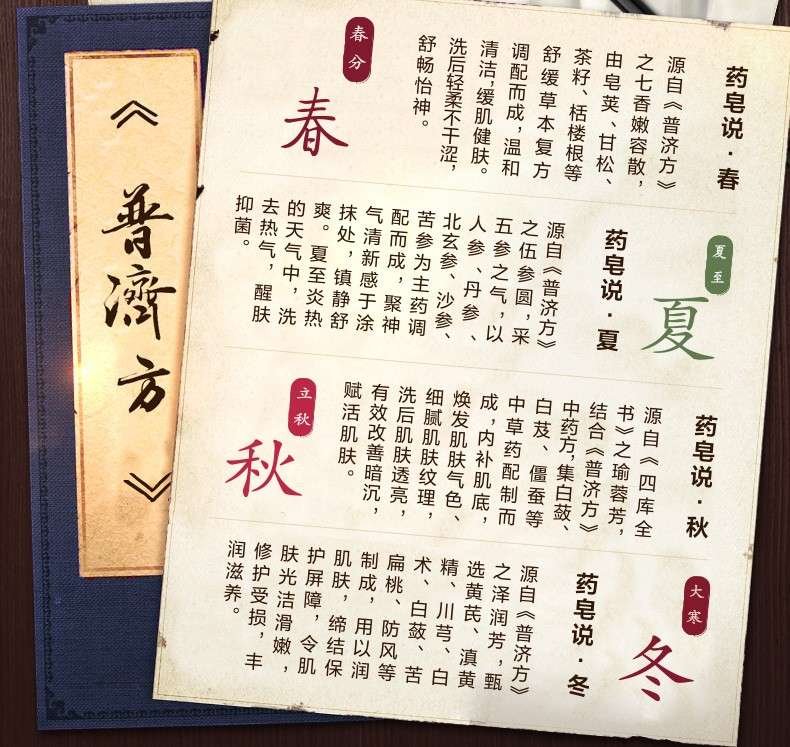 《普濟方》
春分
春
药皂说·春
源自《普济方》
之七香嫩容散，
由皂荚、甘松、
茶籽、栝楼根等
舒缓草本复方
调配而成，温和
清洁，缓肌健肤。
洗后轻柔不干涩，
舒畅怡神。
夏至
夏
药皂说·夏
源自《普济方》
之伍参圆，采
五参之气，以
人参、丹参、
北玄参、沙参、
苦参为主药调
配而成，聚神
气清新感于涂
抹处，镇静舒
爽。夏至炎热
的天气中，洗
去热气，醒肤
抑菌。
立秋
秋
药皂说·秋
源自《四库全
书》之瑜蓉芳，
结合《普济方》
中药方，集白蔹、
白芨、僵蚕等
中草药配制而
成，内补肌底，
焕发肌肤气色、
细腻肌肤纹理，
洗后肌肤透亮，
有效改善暗沉，
赋活肌肤。
大寒
冬
药皂说·冬
源自《普济方》
之泽润芳，甄
选黄芪、滇黄
精、川芎、白
术、白蔹、苦
扁桃、防风等
制成，用以润
肌肤，缔结保
护屏障，令肌
肤光洁滑嫩，
修护受损，丰
润滋养。